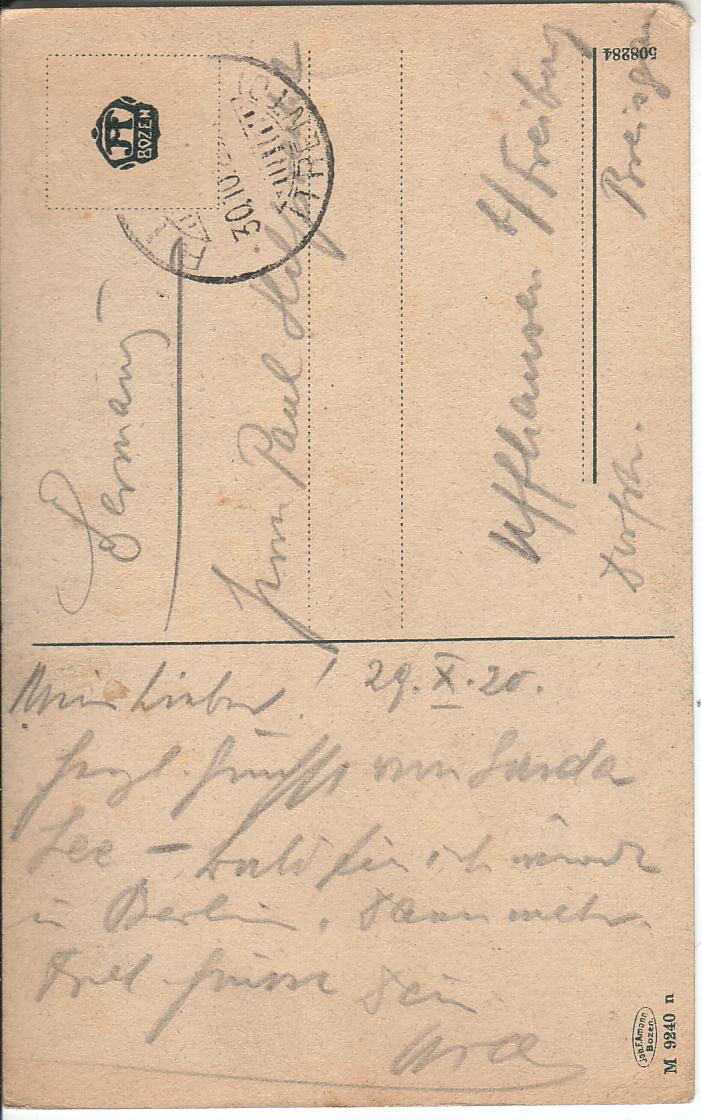 Germany
Herrn Paul
Uffhausen b/Freiburg
Breisgau
Mein Lieber! 29.X.20.
Herzl. Grüsse vom Garda
See – bald bin ich wieder
in Berlin. Dann mehr.
Grüsse Dein
30.10.
TRENTO
JFA
BOZEN
508284
Joh.F.Amonn
Bozen.
M 9240 n